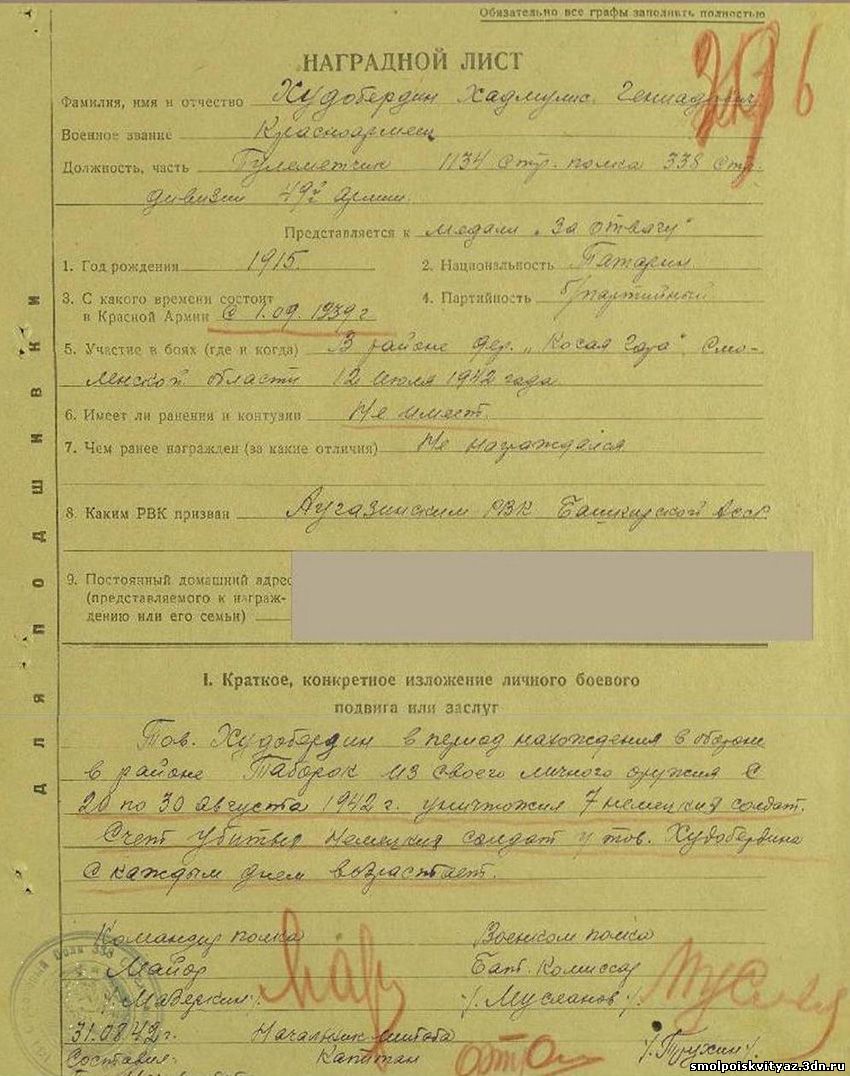 Обязательно все графы заполнять полностью
НАГРАДНОЙ ЛИСТ
Фамилия, имя и отчество Худобердин
Военное звание Красноармеец
Должность, часть Пулеметчик 1134 стр. полка 338 стр.
дивизии 49й армии.
Представляется к медали „За отвагу"
1. Год рождения 1915.
2. Национальность Татарин
3. С какого времени состоит
в Красной Армии С 1.09.1939 г
4. Партийность б/партийный
5. Участие в боях (где и когда) В районе дер. „Косая Гора" Смо-
ленской области 12 июля 1942 года
6. Имеет ли ранения и контузии Не имеет.
7. Чем ранее награжден (за какие отличия) Не награждался
8. Каким РВК призван Аургазинским РВК Башкирской АССР
9. Постоянный домашний адрес
(представляемого к награж-
дению или его семьи)
Для подшивки
I. Краткое, конкретное изложение личного боевого
подвига или заслуг
Тов. Худобердин в период нахождения в обороне
в районе Таборок из своего личного оружия с
20 по 30 августа 1942 г. уничтожил 7 немецких солдат.
Счет убитых немецких солдат у тов. Худобердина
с каждым днем возрастает.
Командир полка
Майор
Военком полка
Бат. Комиссар
/.Мусланов/.
31.08.42 г. Начальник штаба
Составил: Капитан
smolpoiskvityaz.3dn.ru